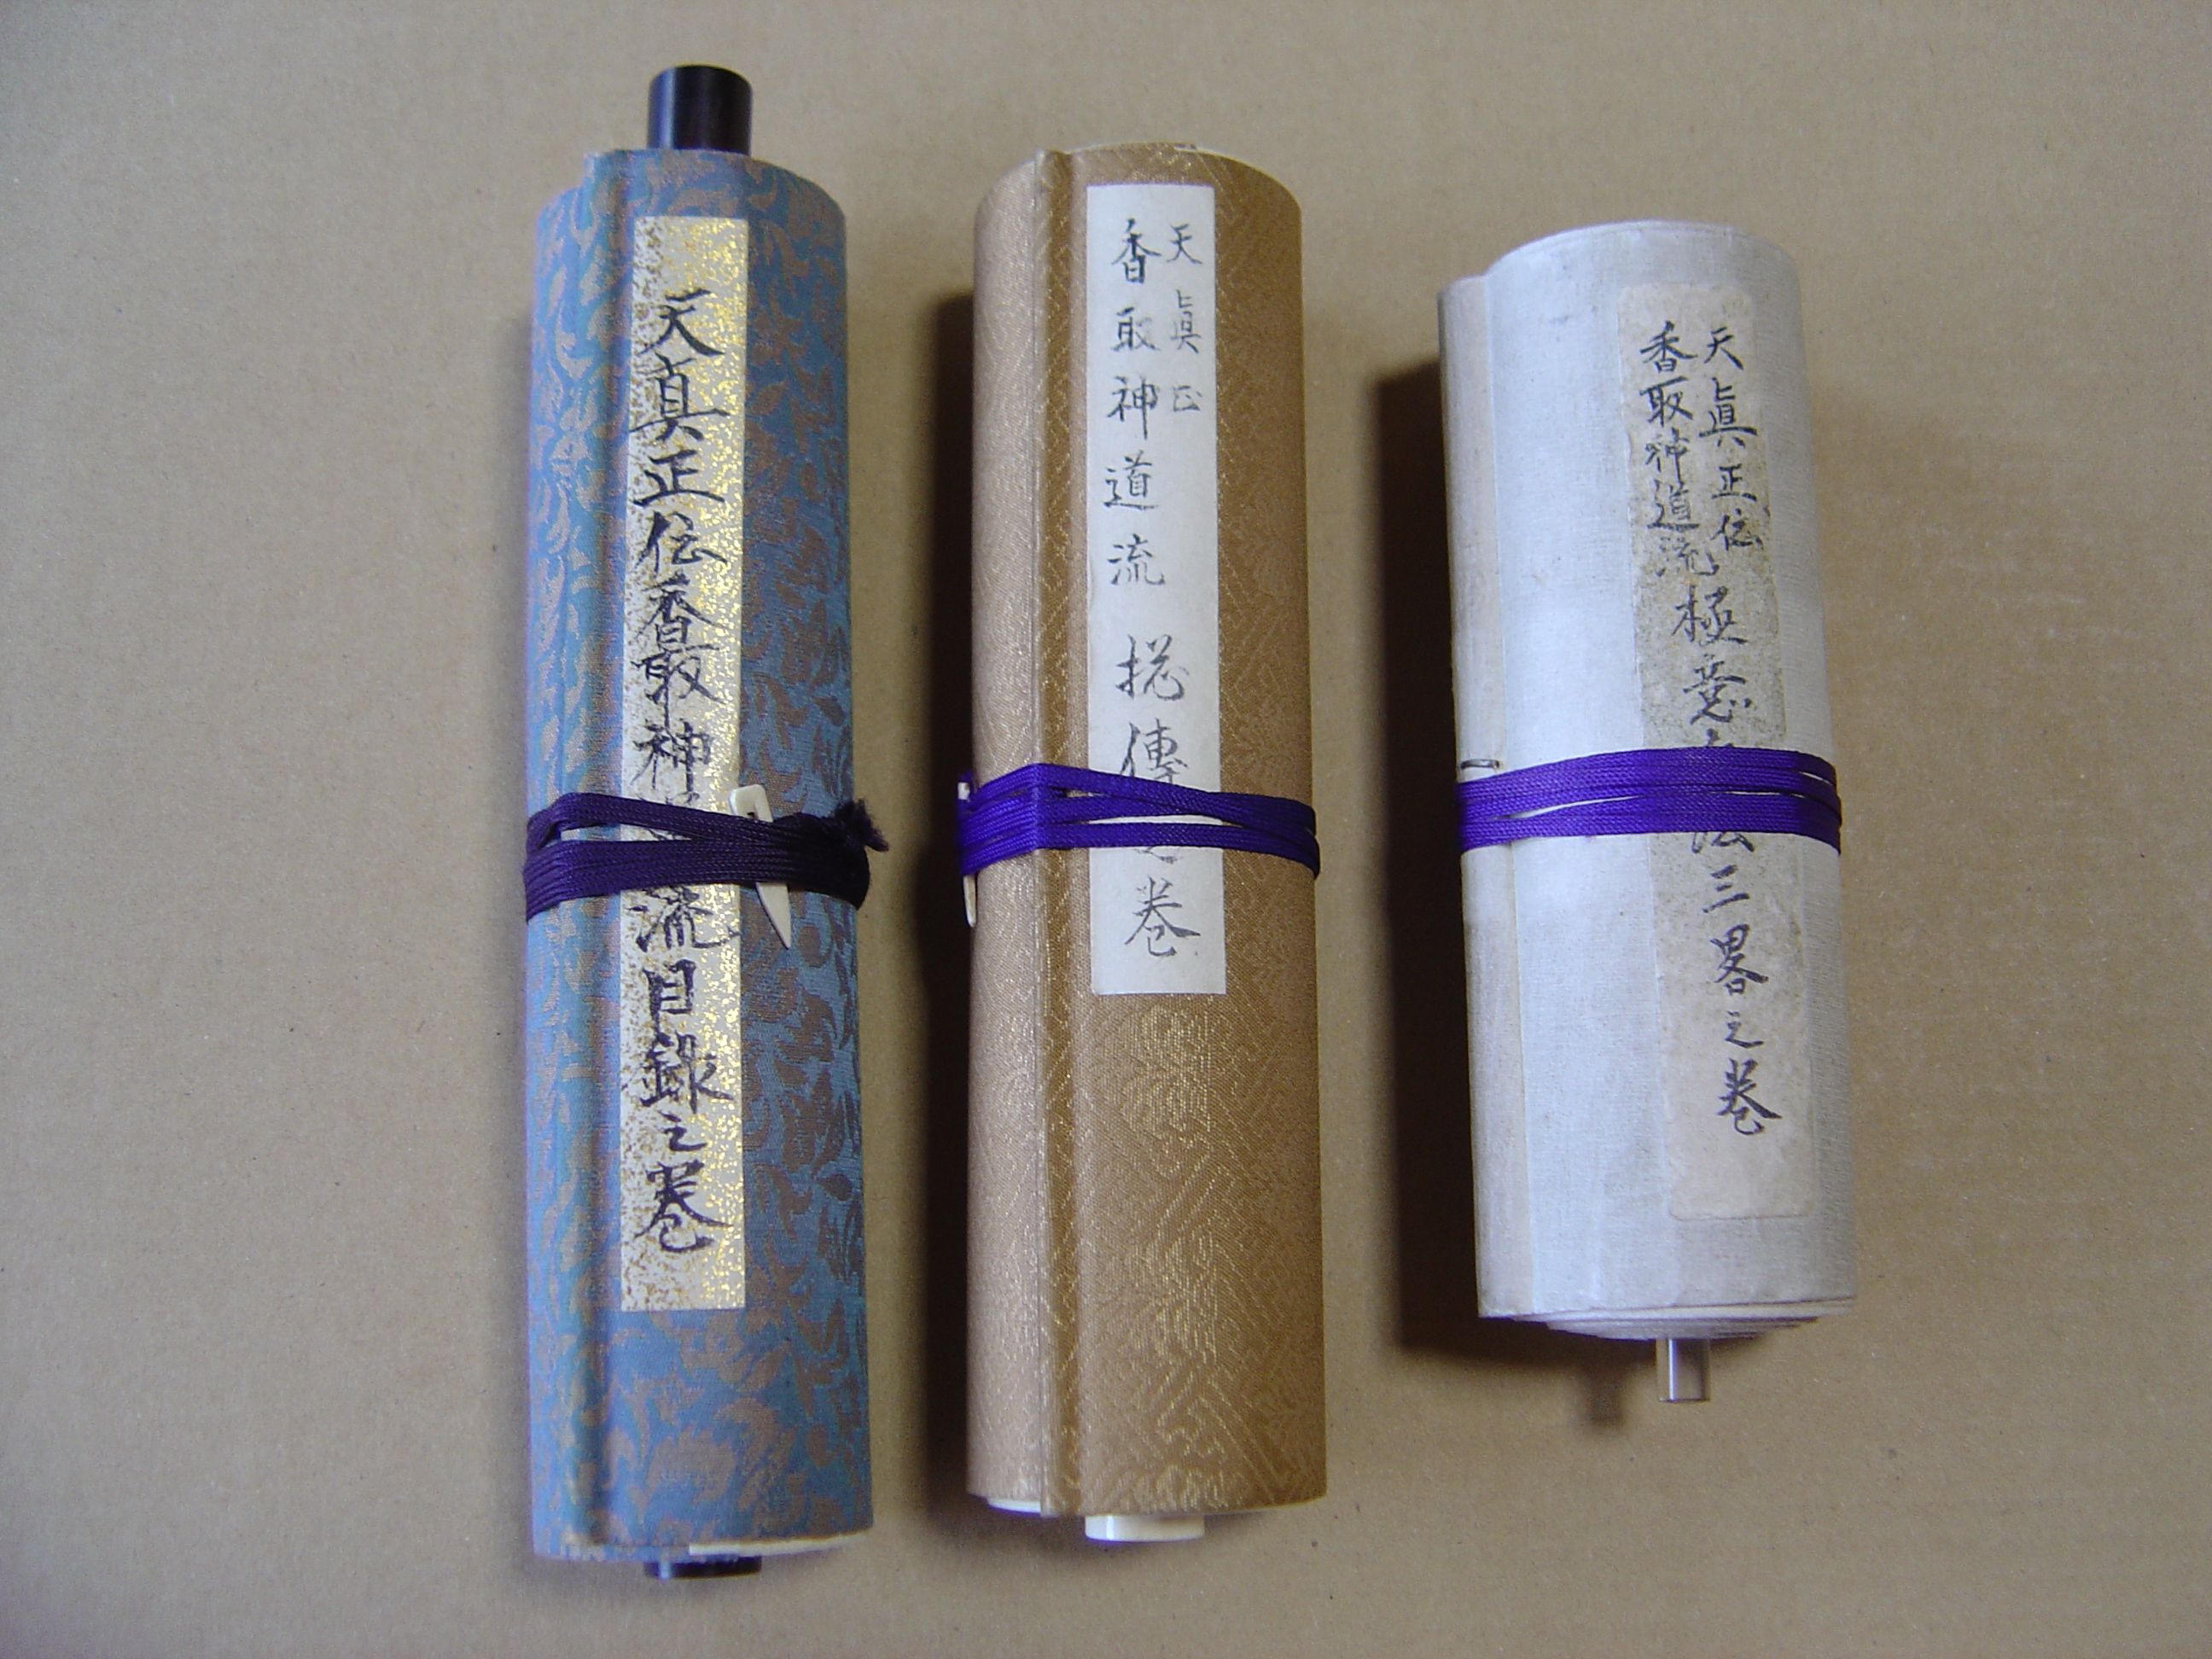 天真正伝香取神流目録之巻
天眞正
香取神道流 捴傳之巻
天眞正伝
香取神道流
極意法三畧之巻